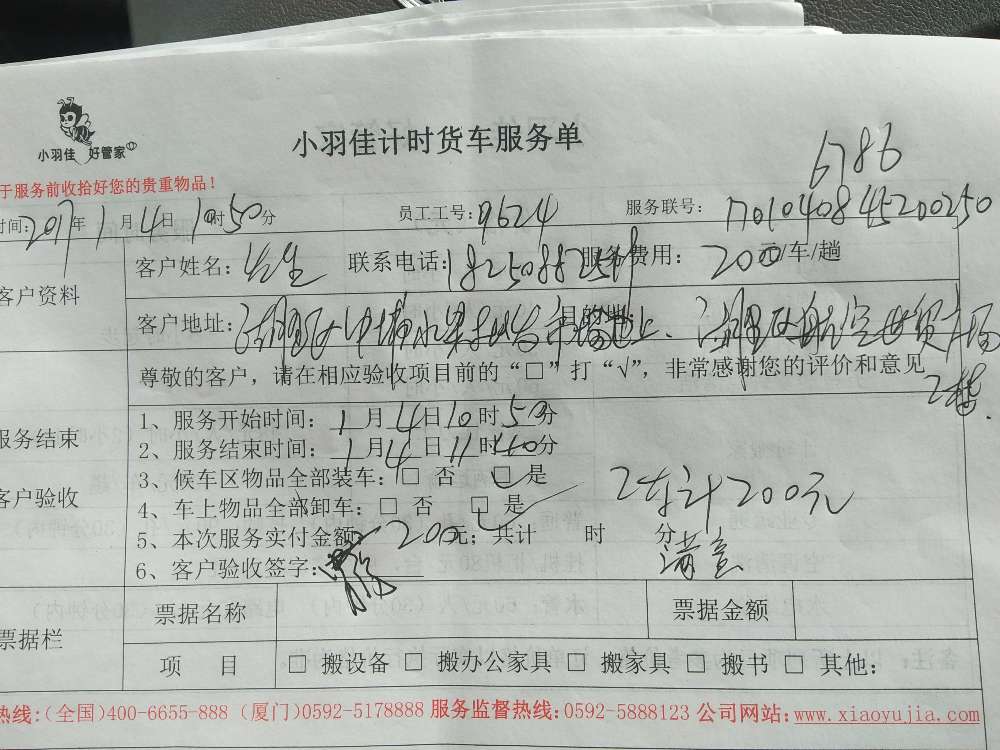 小羽佳 好管家
小羽佳计时货车服务单
6786
于服务前收拾好您的贵重物品！
时间：2017年1月4日10时50分 员工工号：9624 服务联号：17010408445200250
客户资料
客户姓名： 联系电话： 服务费用：200元/车/趟
客户地址： 目的地：
2楼
尊敬的客户，请在相应验收项目前的“□”打“√”，非常感谢您的评价和意见
服务结束
客户验收
1、服务开始时间：1月4日10时50分
2、服务结束时间：1月4日11时40分
3、候车区物品全部装车：□ 否 □ 是
4、车上物品全部卸车：□ 否 □ 是
2车计200元
5、本次服务实付金额：200元；共计 时 分
满意
6、客户验收签字：
票据栏
票据名称 票据金额
项 目 □ 搬设备 □ 搬办公家具 □ 搬家具 □ 搬书 □ 其他：
热线：（全国）400-6655-888（厦门）0592-5178888 服务监督热线：0592-5888123 公司网站：www.xiaoyujia.com